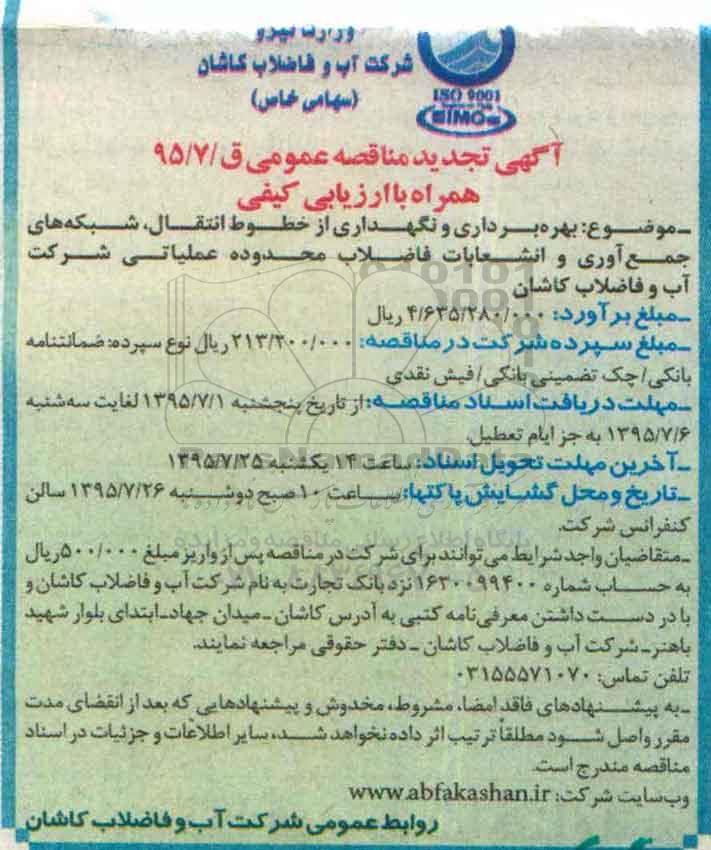 وزارت نیرو
شرکت آب و فاضلاب کاشان
(سهامی خاص)
ISO 9001
آگهی تجدید مناقصه عمومی ق/۹۵/۷
همراه با ارزیابی کیفی
ـ موضوع: بهره‌برداری و نگهداری از خطوط انتقال، شبکه‌های
جمع‌آوری و انشعابات فاضلاب محدوده عملیاتی شرکت
آب و فاضلاب کاشان
ـ مبلغ برآورد: ۴/۶۳۵/۲۸۰/۰۰۰ ریال
ـ مبلغ سپرده شرکت در مناقصه: ۲۱۳/۲۰۰/۰۰۰ ریال نوع سپرده: ضمانتنامه
بانکی/ چک تضمینی بانکی/ فیش نقدی
ـ مهلت دریافت اسناد مناقصه: از تاریخ پنجشنبه ۱۳۹۵/۷/۱ لغایت سه‌شنبه
۱۳۹۵/۷/۶ به جز ایام تعطیل.
ـ آخرین مهلت تحویل اسناد: ساعت ۱۴ یکشنبه ۱۳۹۵/۷/۲۵
ـ تاریخ و محل گشایش پاکتها: ساعت ۱۰ صبح دوشنبه ۱۳۹۵/۷/۲۶ سالن
کنفرانس شرکت.
ـ متقاضیان واجد شرایط می‌توانند برای شرکت در مناقصه پس از واریز مبلغ ۵۰۰/۰۰۰ ریال
به حساب شماره ۱۶۳۰۰۹۹۴۰۰ نزد بانک تجارت به نام شرکت آب و فاضلاب کاشان و
با در دست داشتن معرفی‌نامه کتبی به آدرس کاشان ـ میدان جهاد ـ ابتدای بلوار شهید
باهنر ـ شرکت آب و فاضلاب کاشان ـ دفتر حقوقی مراجعه نمایند.
تلفن تماس: ۰۳۱۵۵۵۷۱۰۷۰
ـ به پیشنهادهای فاقد امضا، مشروط، مخدوش و پیشنهادهایی که بعد از انقضای مدت
مقرر واصل شود مطلقاً ترتیب اثر داده نخواهد شد، سایر اطلاعات و جزئیات در اسناد
مناقصه مندرج است.
وب‌سایت شرکت: www.abfakashan.ir
روابط عمومی شرکت آب و فاضلاب کاشان